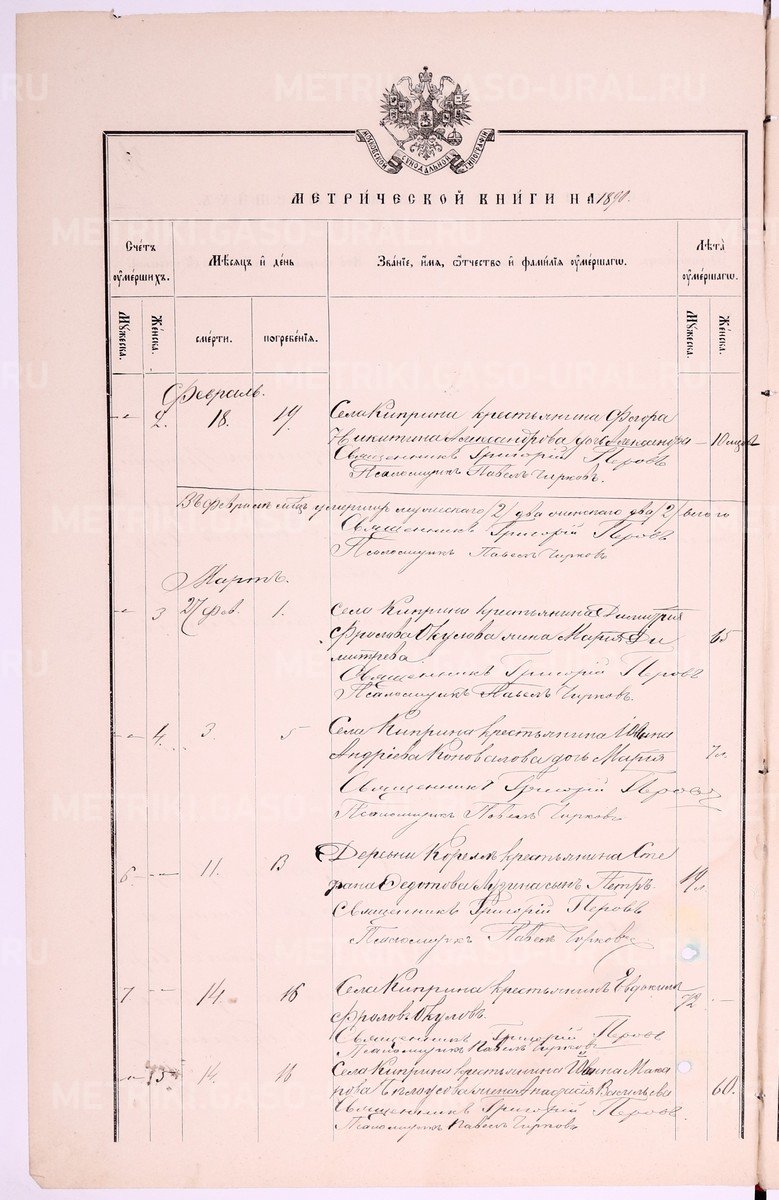 МОСКОВСКОЙ СѴНОДАЛЬНОЙ ТИПОГРАФІИ
МЕТРИ́ЧЕСКОЙ КНИ́ГИ НА 1890.
Сче́тъ ᲂу҆ме́ршихъ.
Мѣ́сяцъ и҆ де́нь
Зва́нїе, и҆́мя, ѻ҆́тчество и҆ фами́лїя ᲂу҆ме́ршагѡ.
Лѣ́та ᲂу҆ме́ршагѡ.
Мꙋ́жеска.
Же́нска.
сме́рти.
погребе́нїя.
Мꙋ́жеска.
Же́нска.
Февраль.
2. 18. 19. Села Киприна крестьянина Ѳеодора
Никитина Александрова дочь Александра — 10 мѣсяц
Священникъ Григорій Перовъ
Псаломщикъ Павелъ Чирковъ.
Въ Февралѣ мѣс. умерших мужскаго /2/ два женскаго два /2/ всего
Священникъ Григорій Перовъ
Псаломщикъ Павелъ Чирковъ
Мартъ.
3 27 фев. 1. Села Киприна крестьянина Димитрія
Фролова Окулова жена Марія Ди 65
митрева
Священникъ Григорій Перовъ
Псаломщикъ Павелъ Чирковъ.
4. 3. 5 Села Киприна крестьянина Ивана
Андріева Коновалова дочь Марія 7 л.
Священникъ Григорій Перовъ
Псаломщикъ Павелъ Чирковъ
6 11. 13 Деревни Корелъ крестьянина Сте
фана Федотова сынъ Петръ 19 л.
Священникъ Григорій Перовъ
Псаломщикъ Павелъ Чирковъ
7 14. 16 Села Киприна крестьянинъ Евдокимъ 72
Фроловъ Окуловъ.
Священникъ Григорій Перовъ
Псаломщикъ Павелъ Чирковъ
5 14. 16 Села Киприна крестьянина Ивана Мака
рова Бѣлоусова жена Анафасія Васильева 60.
Священникъ Григорій Перовъ
Псаломщикъ Павелъ Чирковъ
METRIKI.GASO-URAL.RU